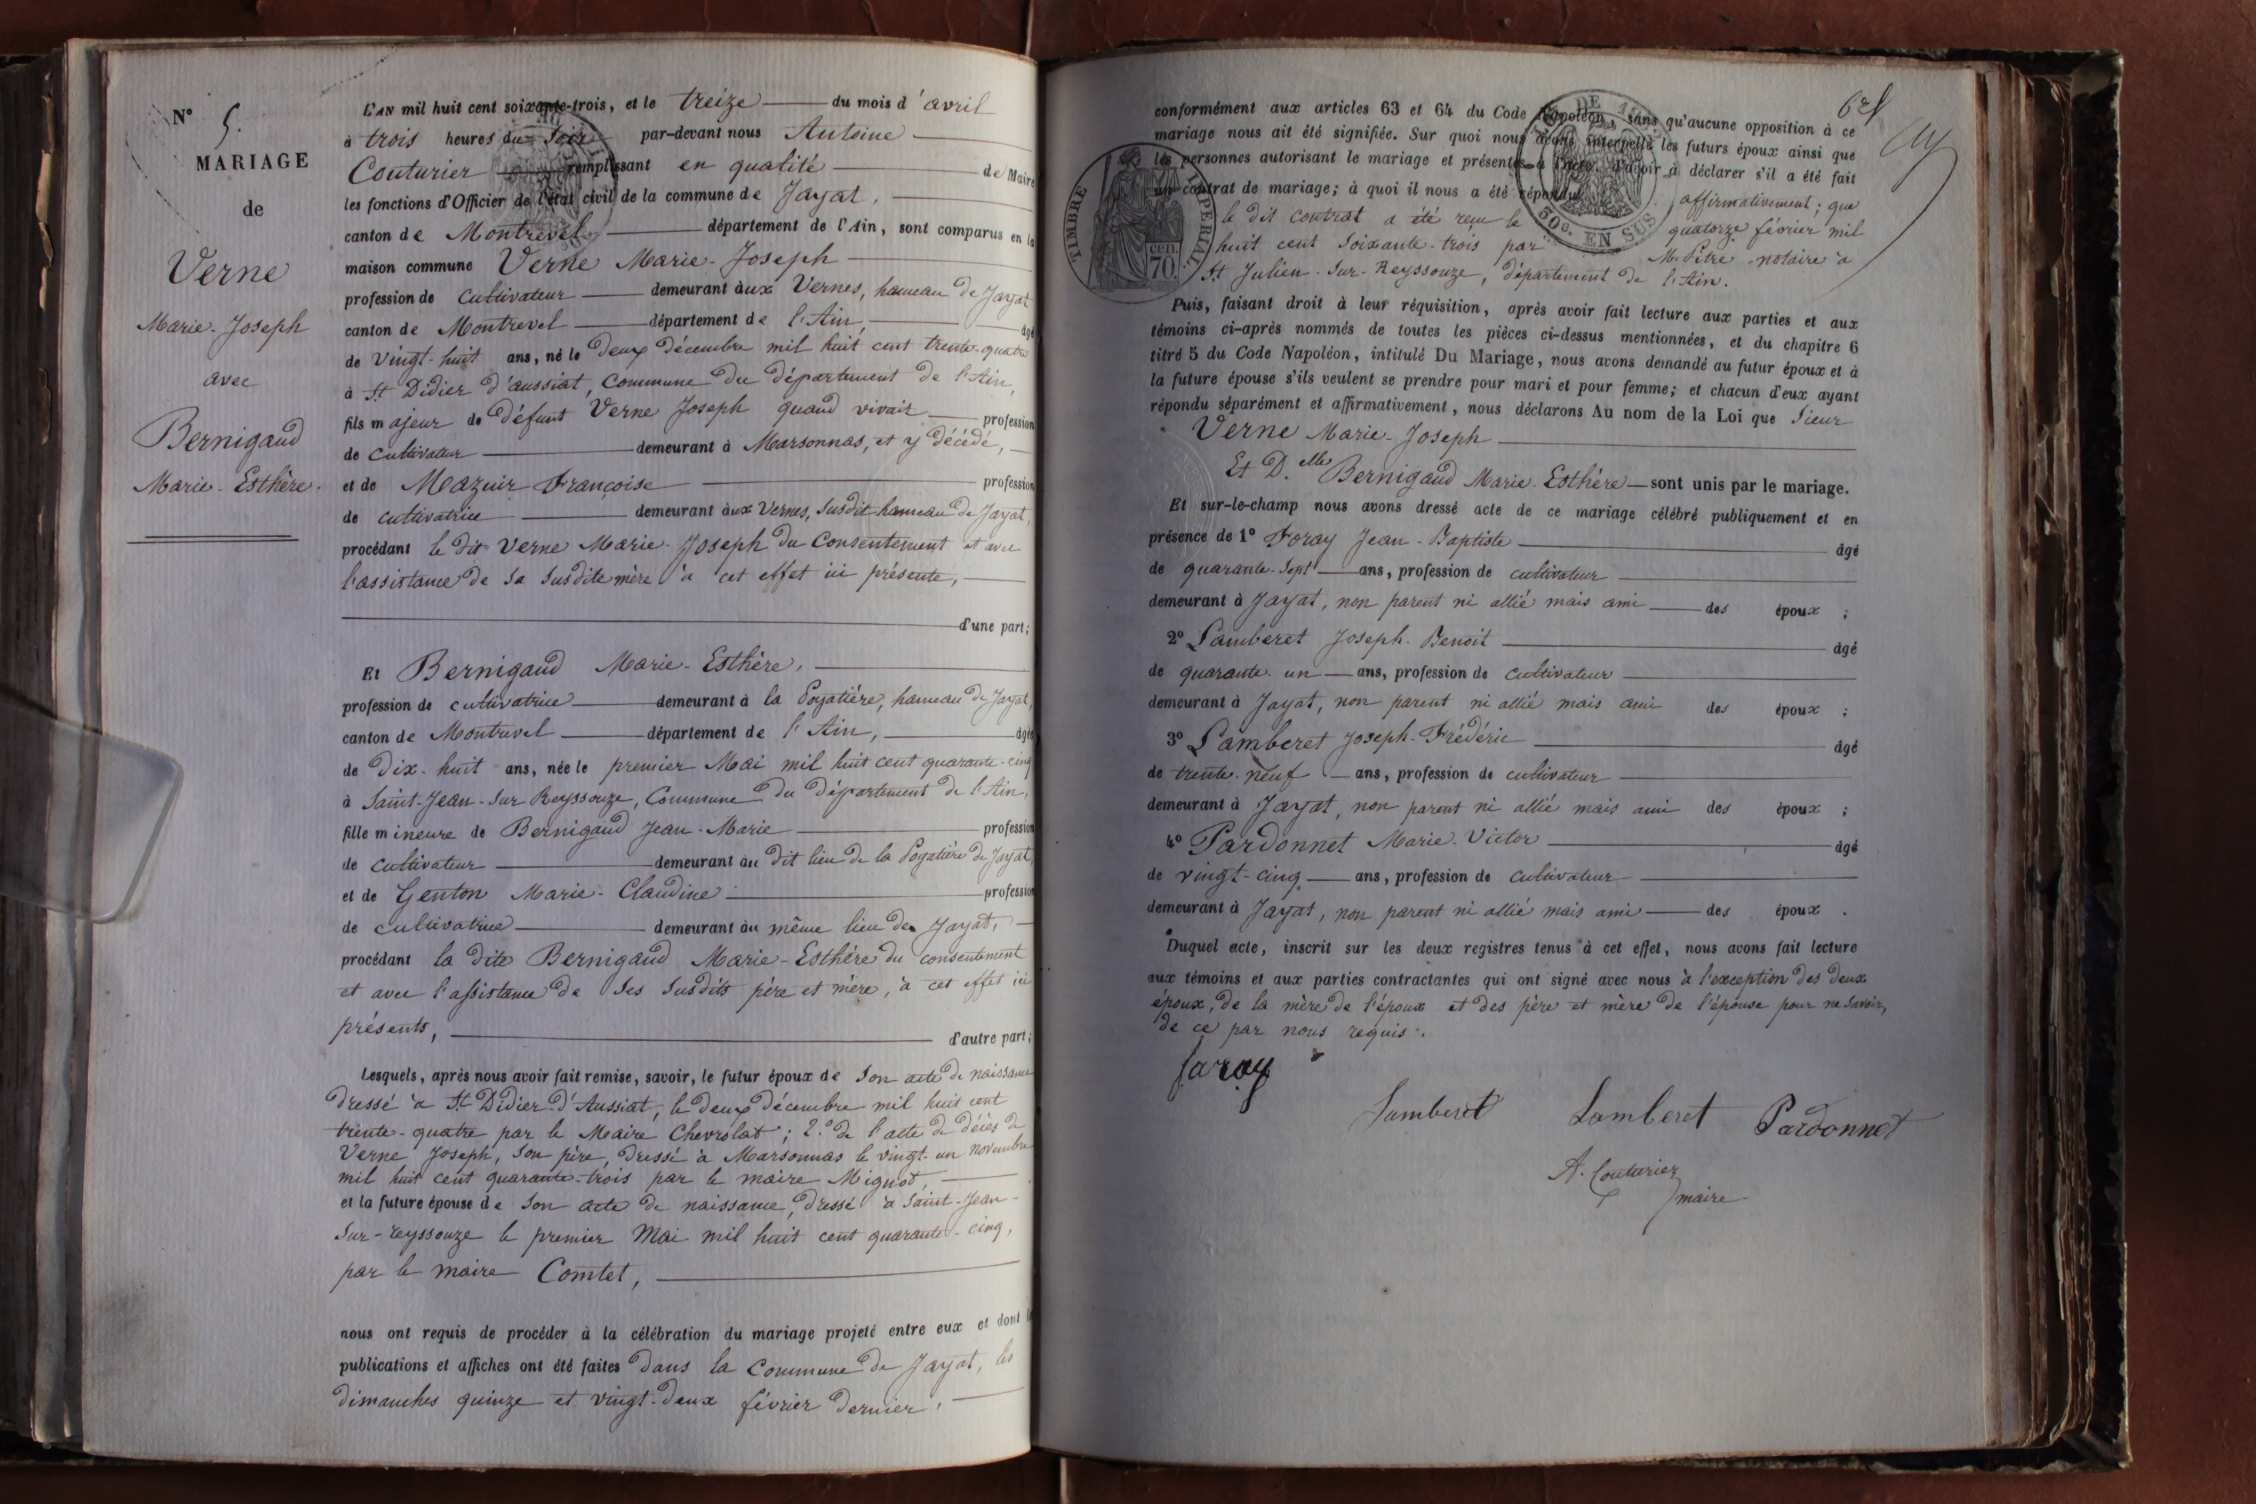 N° 5.
MARIAGE
de
Verne
Marie-Joseph
avec
Bernigaud
Marie-Esthère.
L'AN mil huit cent soixante-trois, et le treize du mois d'avril
à trois heures du soir par-devant nous Antoine
Couturier remplissant en qualité de Maire
les fonctions d'Officier de l'état civil de la commune de Jayat,
canton de Montrevel département de l'Ain, sont comparus en la
maison commune Verne Marie-Joseph
profession de cultivateur demeurant aux Vernes, hameau de Jayat
canton de Montrevel département de l'Ain, âgé
de vingt-huit ans, né le deux décembre mil huit cent trente-quatre
à St Didier d'aussiat, Commune du département de l'Ain,
fils majeur de défunt Verne Joseph quand vivait profession
de cultivateur demeurant à Marsonnas, et y décédé,
et de Mazuir Françoise profession
de cultivatrice demeurant aux Vernes, susdit hameau de Jayat,
procédant le dit Verne Marie-Joseph du Consentement et avec
l'assistance de sa susdite mère à cet effet ici présente,
d'une part;
Et Bernigaud Marie-Esthère,
profession de cultivatrice demeurant à la Poyatière, hameau de Jayat,
canton de Montrevel département de l'Ain, âgée
de dix-huit ans, née le premier Mai mil huit cent quarante-cinq
à Saint-Jean-sur Reyssouze, Commune du département de l'Ain,
fille mineure de Bernigaud Jean-Marie profession
de cultivateur demeurant au dit lieu de la Poyatière de Jayat,
et de Genton Marie-Claudine profession
de cultivatrice demeurant au même lieu de Jayat,
procédant la dite Bernigaud Marie-Esthère du consentement
et avec l'assistance de ses susdits père et mère, à cet effet ici
présents, d'autre part;
Lesquels, après nous avoir fait remise, savoir, le futur époux de son acte de naissance
dressé à St Didier-d'Aussiat, le deux décembre mil huit cent
trente-quatre par le Maire Chevrolat; 2.° de l'acte de décès de
Verne Joseph, son père, dressé à Marsonnas le vingt-un novembre
mil huit cent quarante-trois par le maire Mignot,
et la future épouse de son acte de naissance, dressé à Saint-Jean-
sur-reyssouze le premier Mai mil huit cent quarante-cinq,
par le maire Comtet,
nous ont requis de procéder à la célébration du mariage projeté entre eux et dont les
publications et affiches ont été faites dans la commune de Jayat, les
dimanches quinze et vingt-deux février dernier,
conformément aux articles 63 et 64 du Code Napoléon, sans qu'aucune opposition à ce
mariage nous ait été signifiée. Sur quoi nous avons interpellé les futurs époux ainsi que
les personnes autorisant le mariage et présentes à l'acte, d'avoir à déclarer s'il a été fait
un contrat de mariage; à quoi il nous a été répondu affirmativement; que
le dit contrat a été reçu le quatorze février mil
huit cent soixante-trois par Me Pitre notaire à
St Julien-sur-Reyssouze, département de l'Ain.
TIMBRE IMPERIAL
cen. 70.
50c. EN SUS
Puis, faisant droit à leur réquisition, après avoir fait lecture aux parties et aux
témoins ci-après nommés de toutes les pièces ci-dessus mentionnées, et du chapitre 6
titre 5 du Code Napoléon, intitulé Du Mariage, nous avons demandé au futur époux et à
la future épouse s'ils veulent se prendre pour mari et pour femme; et chacun d'eux ayant
répondu séparément et affirmativement, nous déclarons Au nom de la Loi que Sieur
Verne Marie-Joseph
Et D.elle Bernigaud Marie-Esthère sont unis par le mariage.
Et sur-le-champ nous avons dressé acte de ce mariage célébré publiquement et en
présence de 1° Foray Jean-Baptiste âgé
de quarante-sept ans, profession de cultivateur
demeurant à Jayat, non parent ni allié mais ami des époux ;
2° Lamberet Joseph-Benoit âgé
de quarante-un ans, profession de cultivateur
demeurant à Jayat, non parent ni allié mais ami des époux ;
3° Lamberet Joseph-Frédéric âgé
de trente-neuf ans, profession de cultivateur
demeurant à Jayat, non parent ni allié mais ami des époux ;
4° Pardonnet Marie-Victor âgé
de vingt-cinq ans, profession de cultivateur
demeurant à Jayat, non parent ni allié mais ami des époux .
Duquel acte, inscrit sur les deux registres tenus à cet effet, nous avons fait lecture
aux témoins et aux parties contractantes qui ont signé avec nous à l'exception des deux
époux, de la mère de l'époux et des père et mère de l'épouse pour ne savoir,
de ce par nous requis.
foray
Lamberet Lamberet Pardonnet
A. Couturier
maire